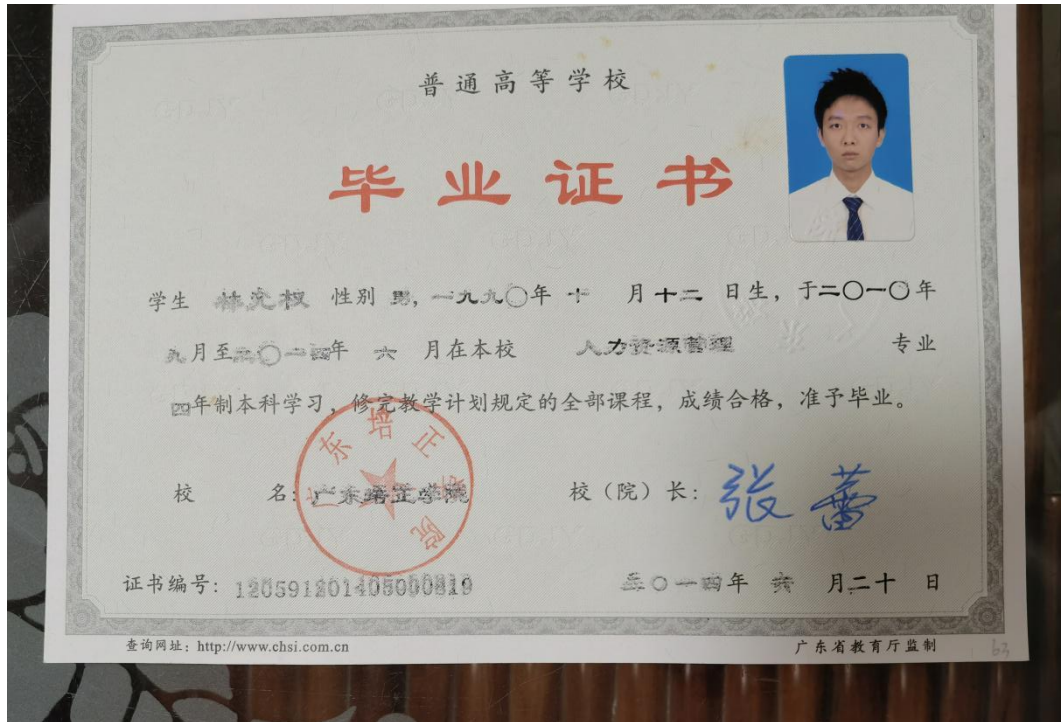 普通高等学校
毕业证书
学生 林允权 性别 男，一九九〇年 十 月十二 日生，于二〇一〇年
九月至二〇一四年 六 月在本校 人力资源管理 专业
四年制本科学习，修完教学计划规定的全部课程，成绩合格，准予毕业。
广东培正学院
校 名：广东培正学院 校（院）长：张蕾
证书编号：120591201405000819 二〇一四年 六 月二十 日
查询网址：http://www.chsi.com.cn 广东省教育厅监制 63